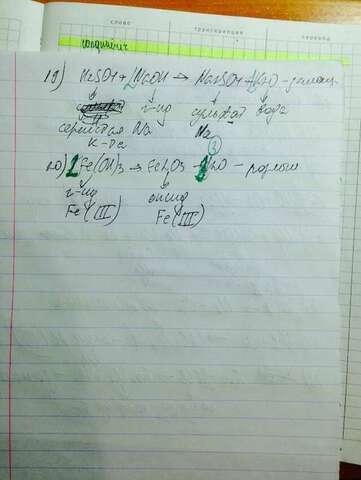 слово транскрипция перевод
19) H2SO4 + 2NaOH → Na2SO4 + 2H2O -
г-ид сульфат вода
серная Na Na
к-та
20) 2Fe(OH)3 → Fe2O3 + 3H2O - разлож
г-ид оксид
Fe (III) Fe (III)